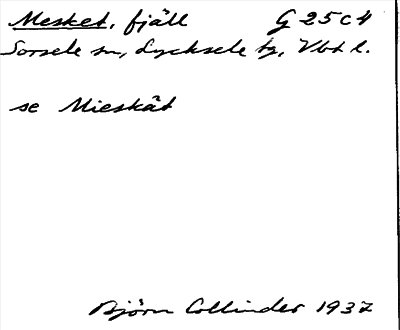 Mesket, fjäll G 25 c 4
Sorsele sn, Lycksele tg, Vbt l.
se Mieskăt
Björn Collinder 1937